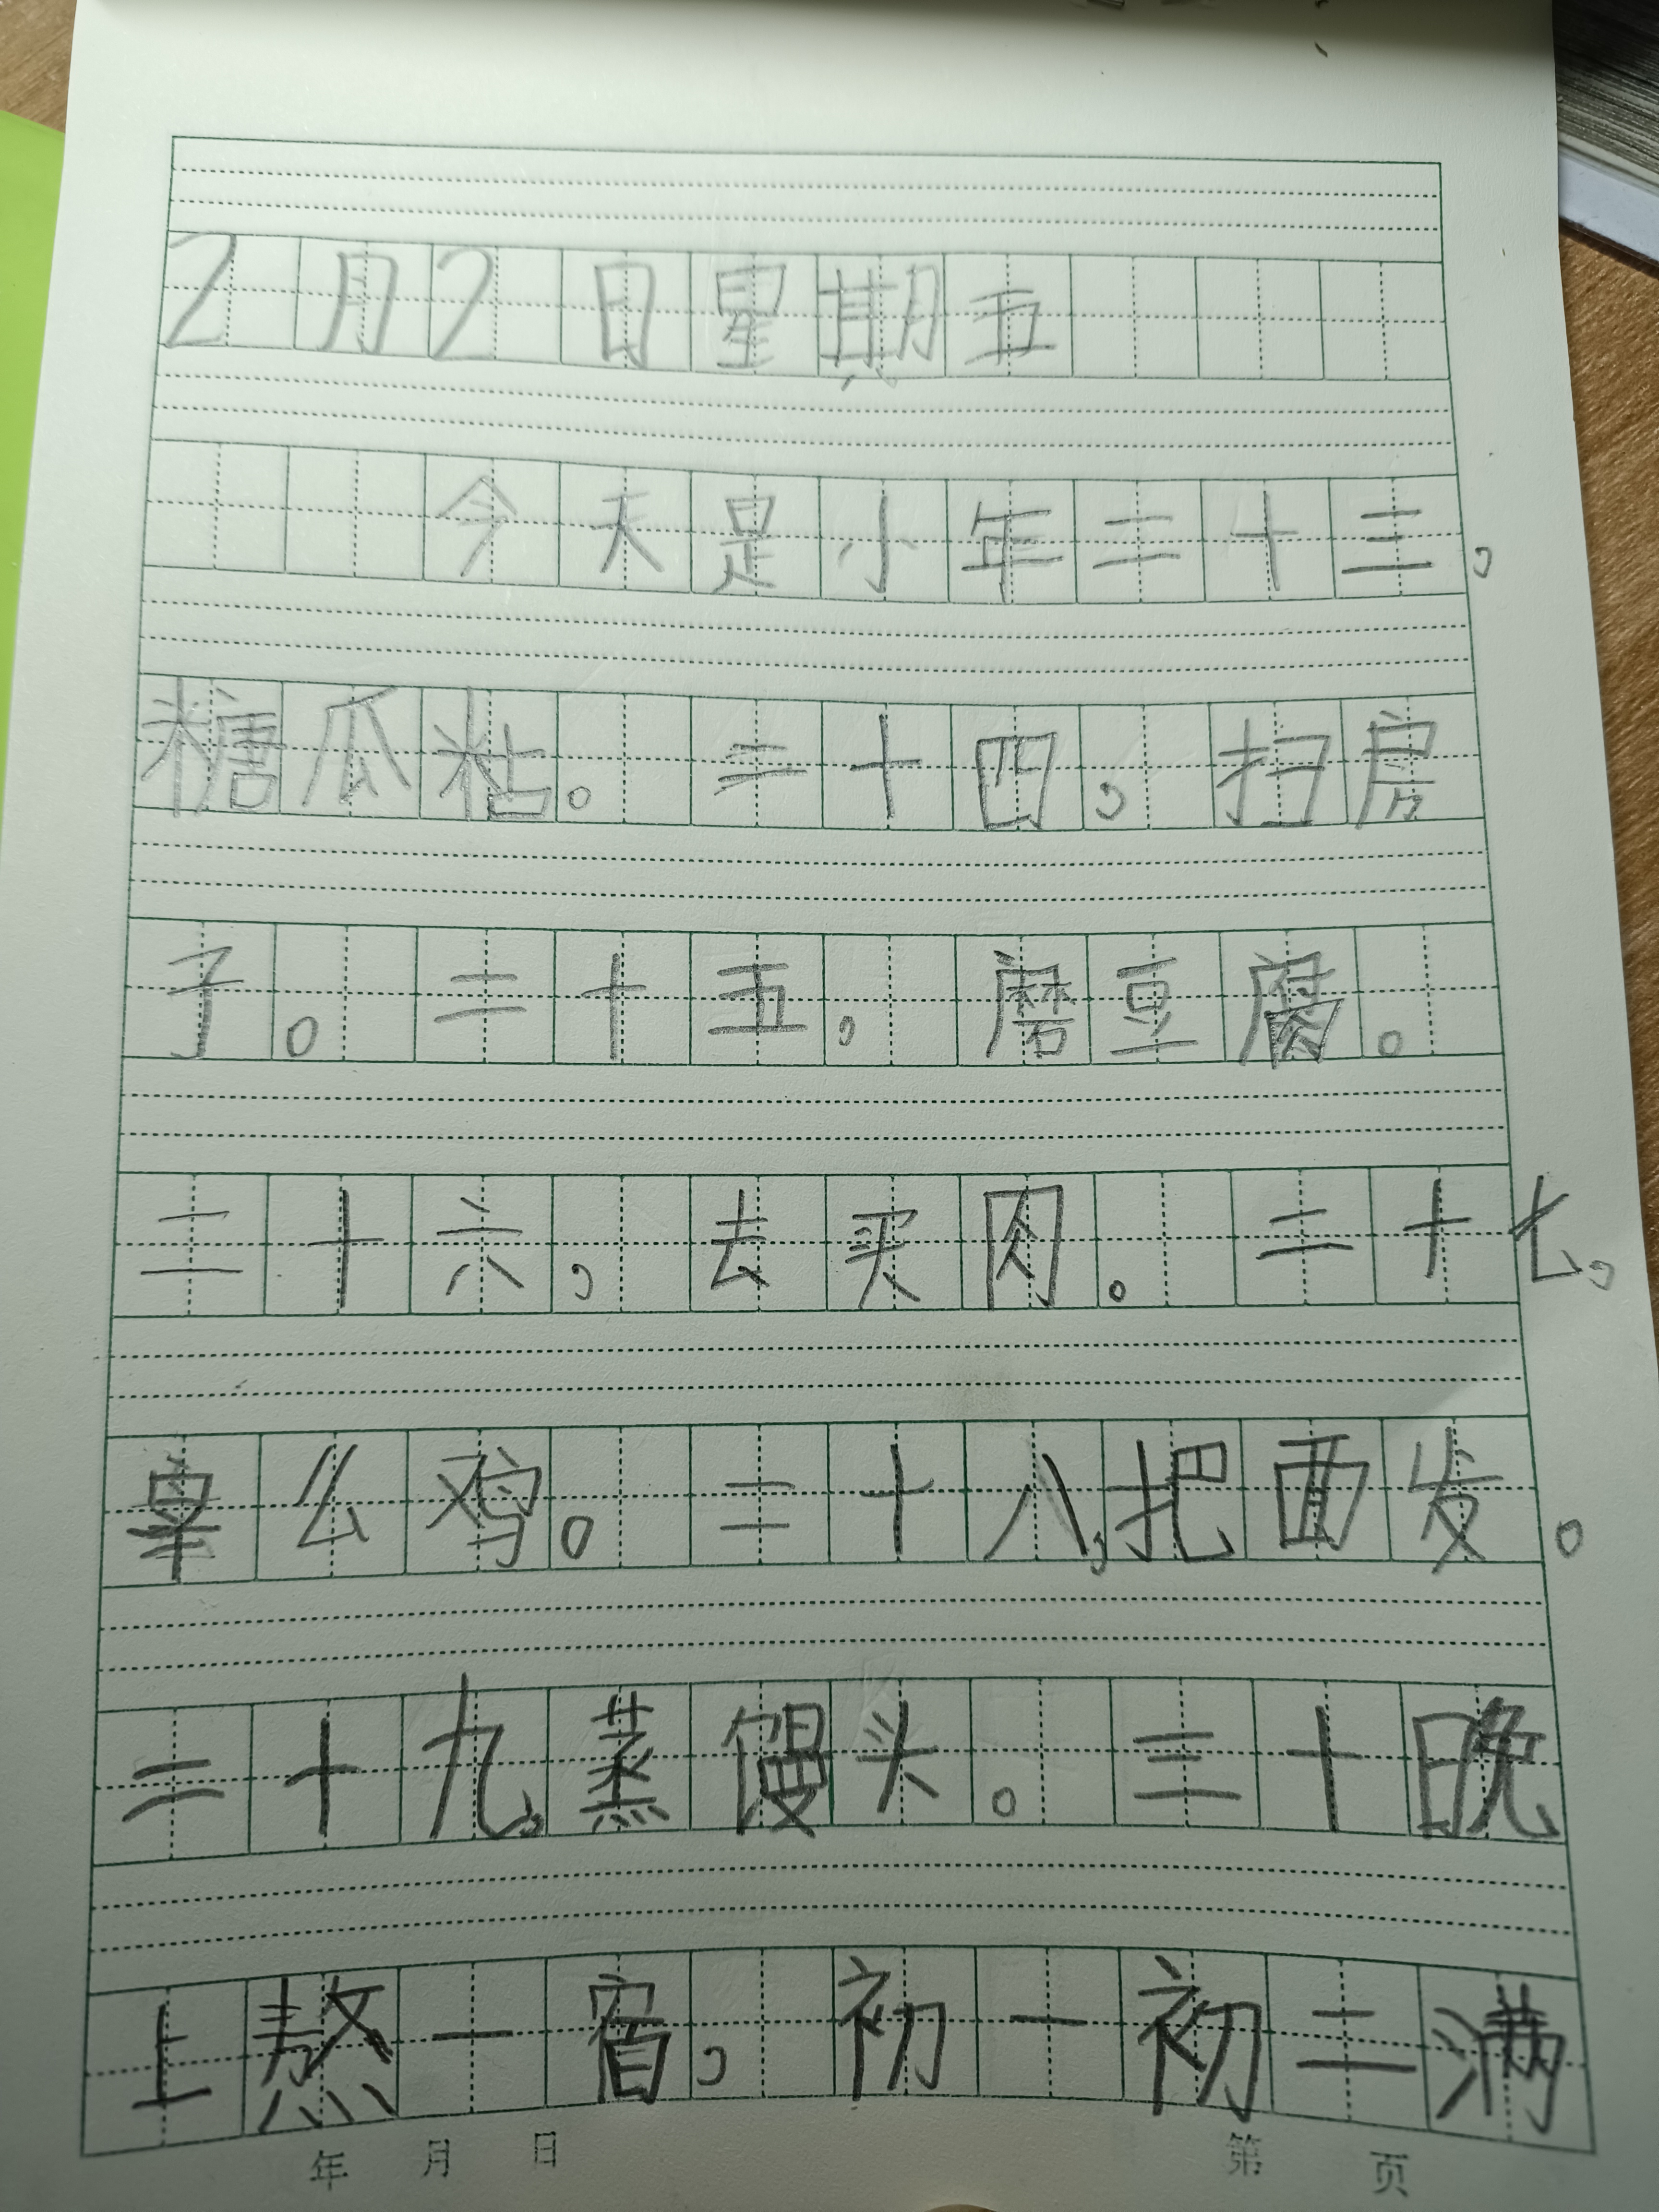 2月2日星期五
今天是小年二十三，
糖瓜粘。二十四，扫房
子。二十五，磨豆腐。
二十六，去买肉。二十七，
宰么鸡。二十八，把面发。
二十九，蒸馒头。三十晚
上熬一宿，初一初二满
年 月 日 第 页